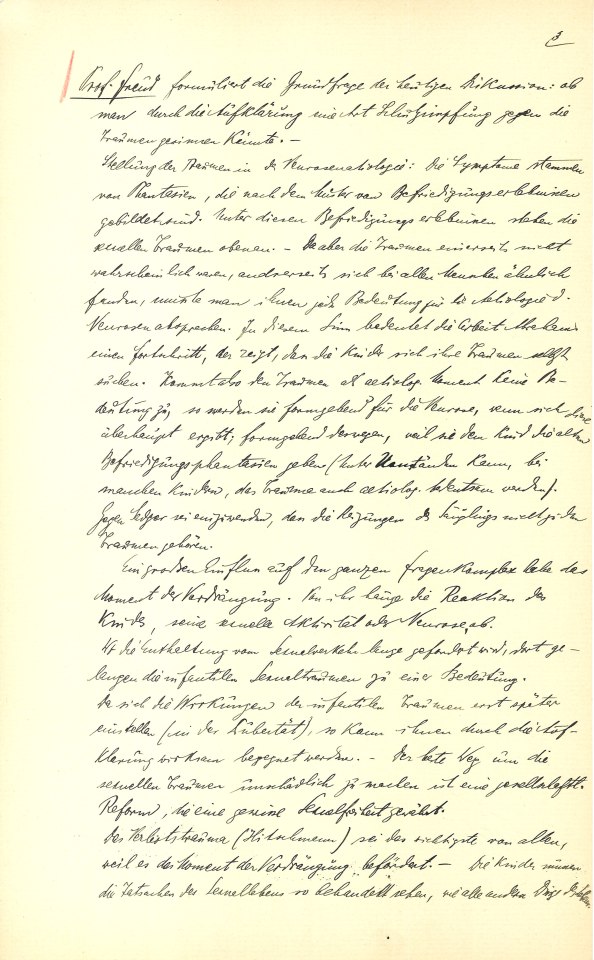 3
Prof. Freud formuliert die Grundfrage der heutigen Diskussion: ob
man durch die Aufklärung eine Art Schutzimpfung gegen die
Traumen gewinnen könnte. –
Stellung der Traumen in der Neurosenätiologie: Die Symptome stammen
von Phantasien, die nach dem Muster von Befriedigungserlebnissen
gebildet sind. Unter diesen Befriedigungserlebnissen stehen die
sexuellen Traumen obenan. – Da aber die Traumen einerseits nicht
wahrscheinlich waren, andrerseits sich bei allen Menschen ähnlich
fanden, musste man ihnen jede Bedeutung für die Aetiologie d.
Neurosen absprechen. In diesem Sinn bedeutet die Arbeit Abrahams
einen Fortschritt, der zeigt, dass die Kinder sich ihre Traumen selbst
suchen. Kommt also den Traumen als aetiolog. Moment keine Be-
deutung zu, so werden sie formgebend für die Neurose, wenn sich diese
überhaupt ergibt; formgebend deswegen, weil sie dem Kind die alten
Befriedigungsphantasien geben (Unter Umständen kann, bei
manchen Kindern, das Trauma auch aetiolog. bedeutsam werden).
Gegen Sadger sei einzuwenden, dass die Reizungen des Säuglings nicht zu den
Traumen gehören.
Einen großen Einfluss auf den ganzen Fragenkomplex habe das
Moment der Verdrängung. Von ihr hänge die Reaktion des
Kindes, seine sexuelle Aktivität oder Neurose, ab.
Wo die Enthaltung vom Sexualverkehr lange gefordert wird, dort ge-
langen die infantilen Sexualtraumen zu einer Bedeutung.
Da sich die Wirkungen der infantilen Traumen erst später
einstellen (in der Pubertät), so kann ihnen durch die Auf-
klärung wirksam begegnet werden. – Der beste Weg um die
sexuellen Traumen unschädlich zu machen ist eine gesellschaftl.
Reform, die eine gewisse Sexualfreiheit gewährt.
Das Verbotstrauma (Hitschmann) sei das wichtigste von allen,
weil es das Moment der Verdrängung befördert. – Die Kinder müssen
die Tatsachen des Sexuallebens so behandelt sehen, wie alle andern Dinge